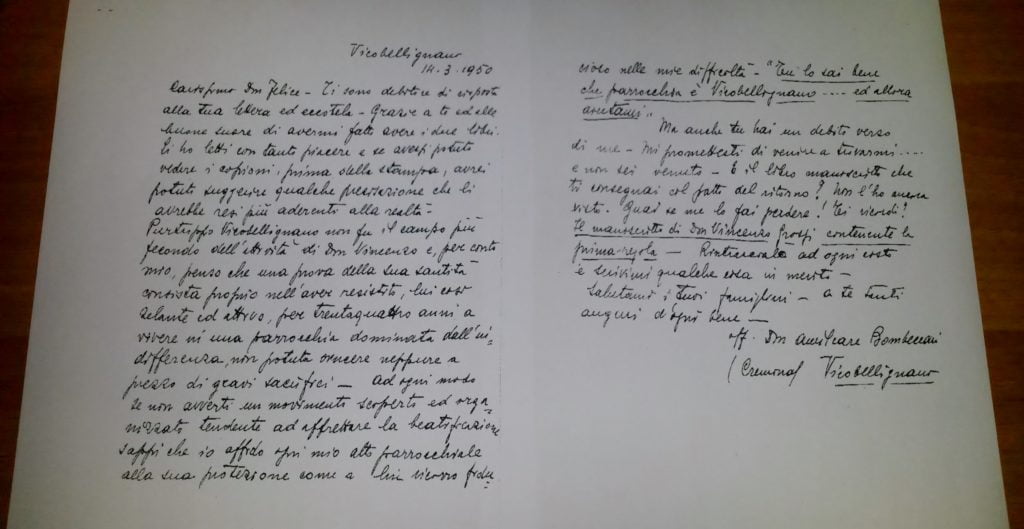 Vicobellignano
14.3.1950
Carissimo Don Felice - Ti sono debitore di risposta
alla tua lettera ed eccotela - Grazie a te ed alle
buone suore di avermi fatto avere i due libri.
Li ho letti con tanto piacere e se avessi potuto
vedere i copioni, prima della stampa, avrei
potuto suggerire qualche precisazione che li
avrebbe resi più aderenti alla realtà -
Purtroppo Vicobellignano non fu il campo più
fecondo dell'attività di Don Vincenzo e, per conto
mio, penso che una prova della sua santità
consista proprio nell'aver resistito, lui così
zelante ed attivo, per trentaquattro anni a
vivere in una parrocchia dominata dall'in-
differenza, non potuta vincere neppure a
prezzo di gravi sacrifici - Ad ogni modo
se non avverti un movimento scoperto ed orga-
nizzato tendente ad affrettare la beatificazione
sappi che io affido ogni mio atto parrocchiale
alla sua protezione come a lui ricorro fidu-
cioso nelle mie difficoltà - "Tu lo sai bene
che parrocchia è Vicobellignano .... ed allora
aiutami".
Ma anche tu hai un debito verso
di me - Mi promettesti di venire a trovarmi ....
e non sei venuto - E il libro manoscritto che
ti consegnai col patto del ritorno? Non l'ho ancora
visto. Guai se me lo fai perdere! Ti ricordi?
Il manoscritto di Don Vincenzo Grossi contenente la
prima regola - Rintraccialo ad ogni costo
e scrivimi qualche cosa in merito -
Salutami i tuoi famigliari - a te tanti
auguri d'ogni bene -
aff. Don Amilcare
(Cremona) Vicobellignano